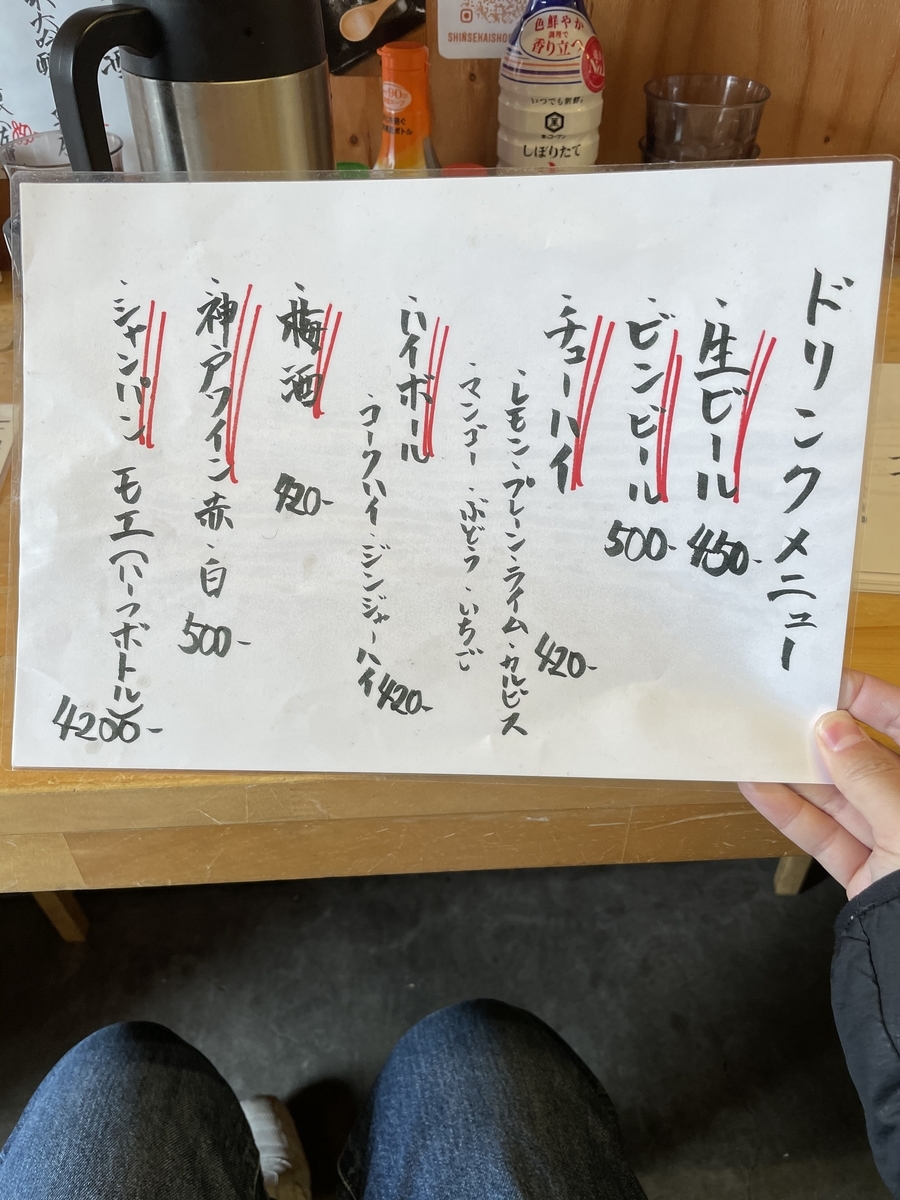 ドリンクメニュー
・生ビール 450-
・ビンビール 500-
・チューハイ 420-
・レモン・プレーン・ライム・カルピス
・マンゴー・ぶどう・いちご
・ハイボール
・コークハイ・ジンジャーハイ 420-
・梅酒 420-
・神戸ワイン 赤・白 500-
・シャンパン モエ(ハーフボトル) 4200-
SHINSEKAISHO
色鮮やか
調理で
香り立つ
いつでも新鮮
しぼりたて